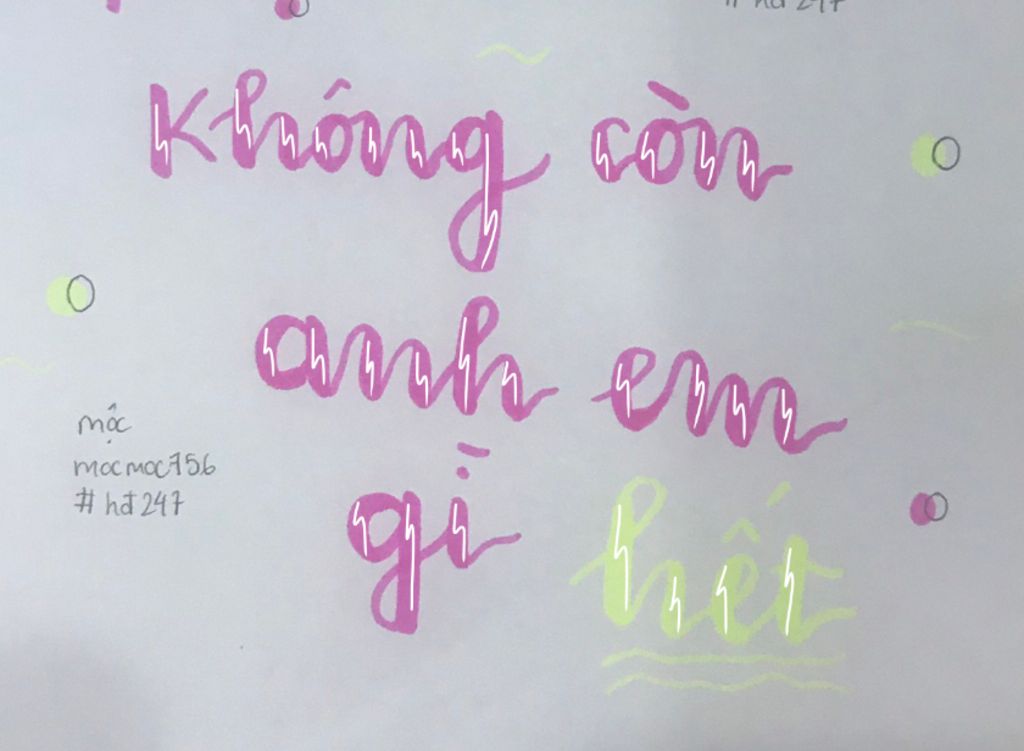 # hđ 247
Không còn
anh em
mộc
mocmoc756
# hđ 247
gì hết